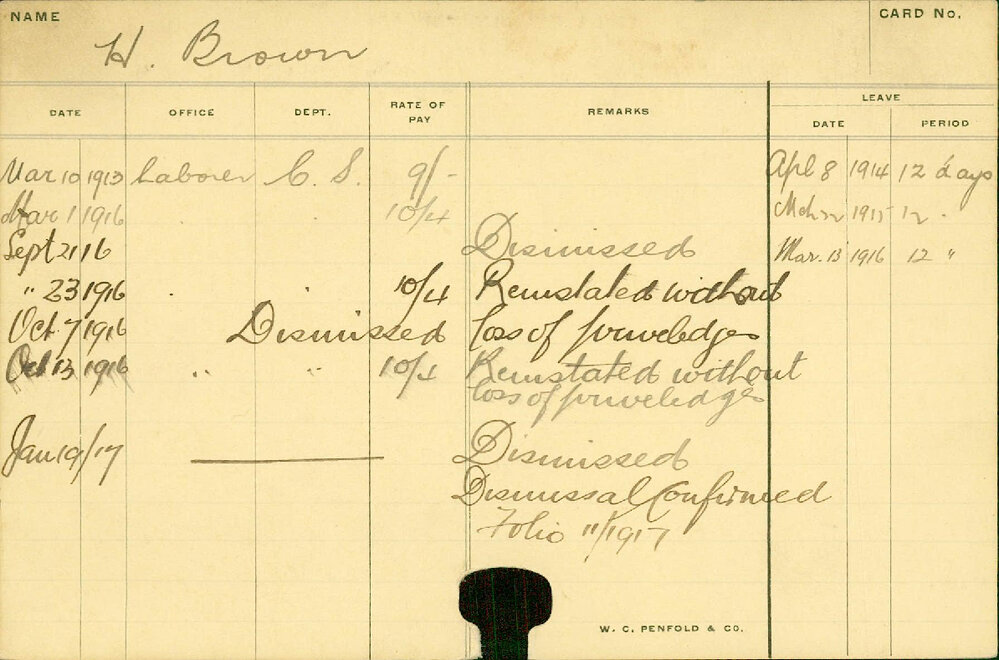 NAME
CARD No.
H. Brown
DATE OFFICE DEPT. RATE OF PAY REMARKS LEAVE
DATE PERIOD
Mar 10 1913 Laborer C. S. 9/- Apl 8 1914 12 days
Mar 1 1916 " " 10/4 Mch 22 1915 12 "
Sept 21 16 Dismissed Mar. 13 1916 12 "
" 23 1916 " 10/4 Reinstated without
Oct. 7 1916 Dismissed loss of priveledges
Oct 13 1916 " " 10/4 Reinstated without
loss of priveledges
Jan 19/17 Dismissed
Dismissal Confirmed
Folio 11/1917
W. C. PENFOLD & CO.